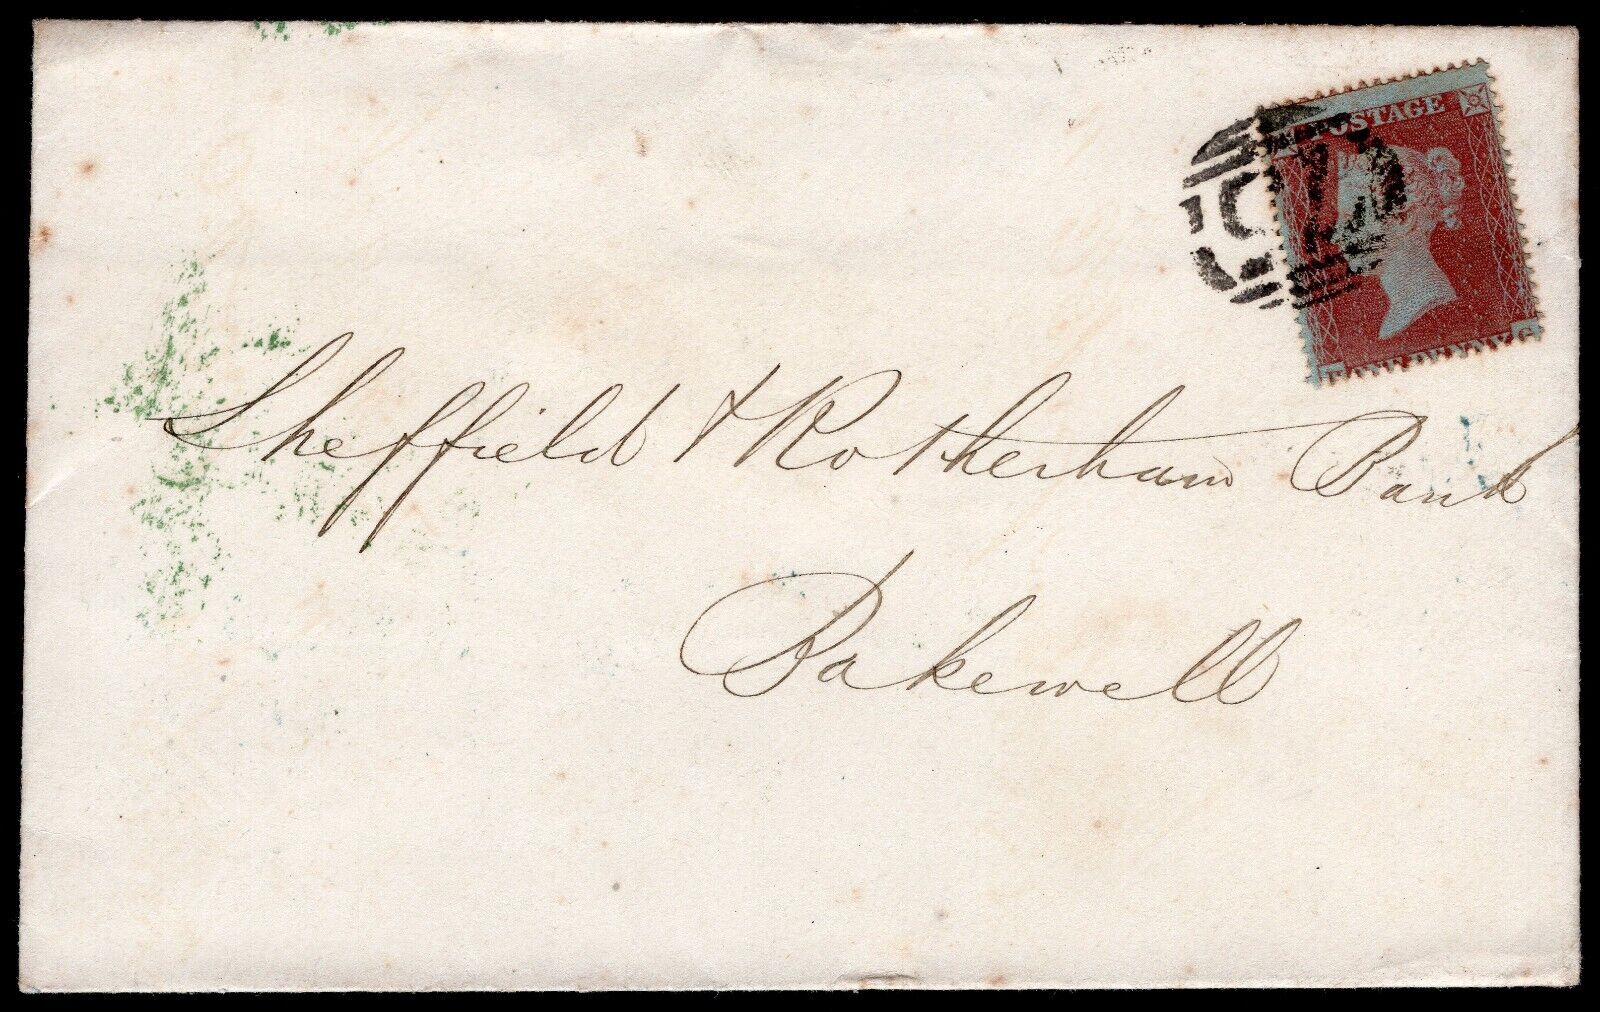 POSTAGE
ONE PENNY G
Sheffield & Rotherham Bank
Bakewell